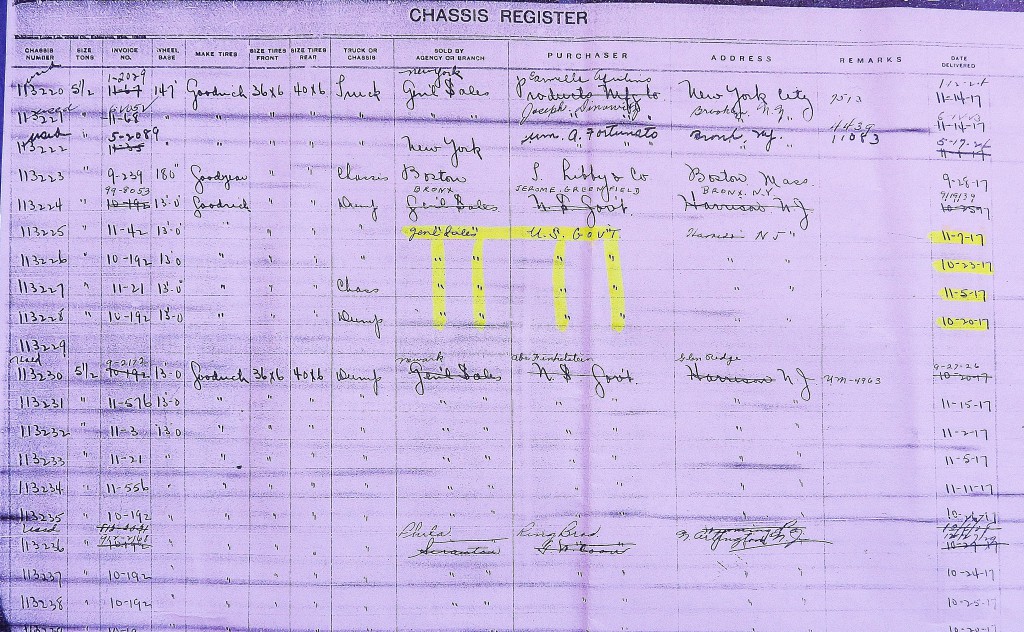 CHASSIS REGISTER
CHASSIS NUMBER SIZE TONS INVOICE NO. WHEEL BASE MAKE TIRES SIZE TIRES FRONT SIZE TIRES REAR TRUCK OR CHASSIS SOLD BY AGENCY OR BRANCH PURCHASER ADDRESS REMARKS DATE DELIVERED
used 1-2029 New York
113220 5 1/2 147" Goodrich 36x6 40x6 Truck Gen'l Sales Products Mfg Co New York City 9513 11-14-17
113221 " 11-68 Joseph Brooklyn N.Y. 11-14-17
used 5-2089 Wm. A. Fortunato Bronx N.Y. 11439
113222 " New York " " 11083 5-17-26
113223 " 9-239 180" Goodyear " " Chassis Boston S. Libby & Co Boston Mass. 9-28-17
99-8053 BRONX JEROME GREENFIELD BRONX, N.Y 9/19/39
113224 " 10-192 13'0" Goodrich " " Dump Gen'l Sales U S Gov't. Harrison N J 10-25-17
113225 " 11-42 13'0" " " " " Gen'l Sales U.S. GOV'T Harrison N J 11-9-17
113226 " 10-192 13'0 " " " " " " " " " " 10-23-17
113227 " 11-21 13'0" " " " Chass " " " " " " 11-5-17
113228 " 10-192 13'0 " " " Dump " " " " " " 10-20-17
113229
Used 9-2172 Newark Abe Finkelstein Glen Ridge 9-27-26
113230 5 1/2 10-192 13'0 Goodrich 36x6 40x6 Dump Gen'l Sales U S Gov't. Harrison N J UM-4963 10-20-17
113231 " 11-576 13'0 " " " " " " " " " " 11-15-17
113232 " 11-3 13'0 " " " " " " " " " " 11-2-17
113233 " 11-21 " " " " " " " " " " " 11-5-17
113234 " 11-556 " " " " " " " " " " " 11-11-17
113235 " 10-192 " " " " " " " " " " "
Used Phila. King Bros. N. Arlington N.J.
113236 " 10-192 " " " " " Scranton
113237 " 10-192 " " " " " " " " " " " 10-24-17
113238 " 10-192 " " " " " " " " " " " 10-25-17